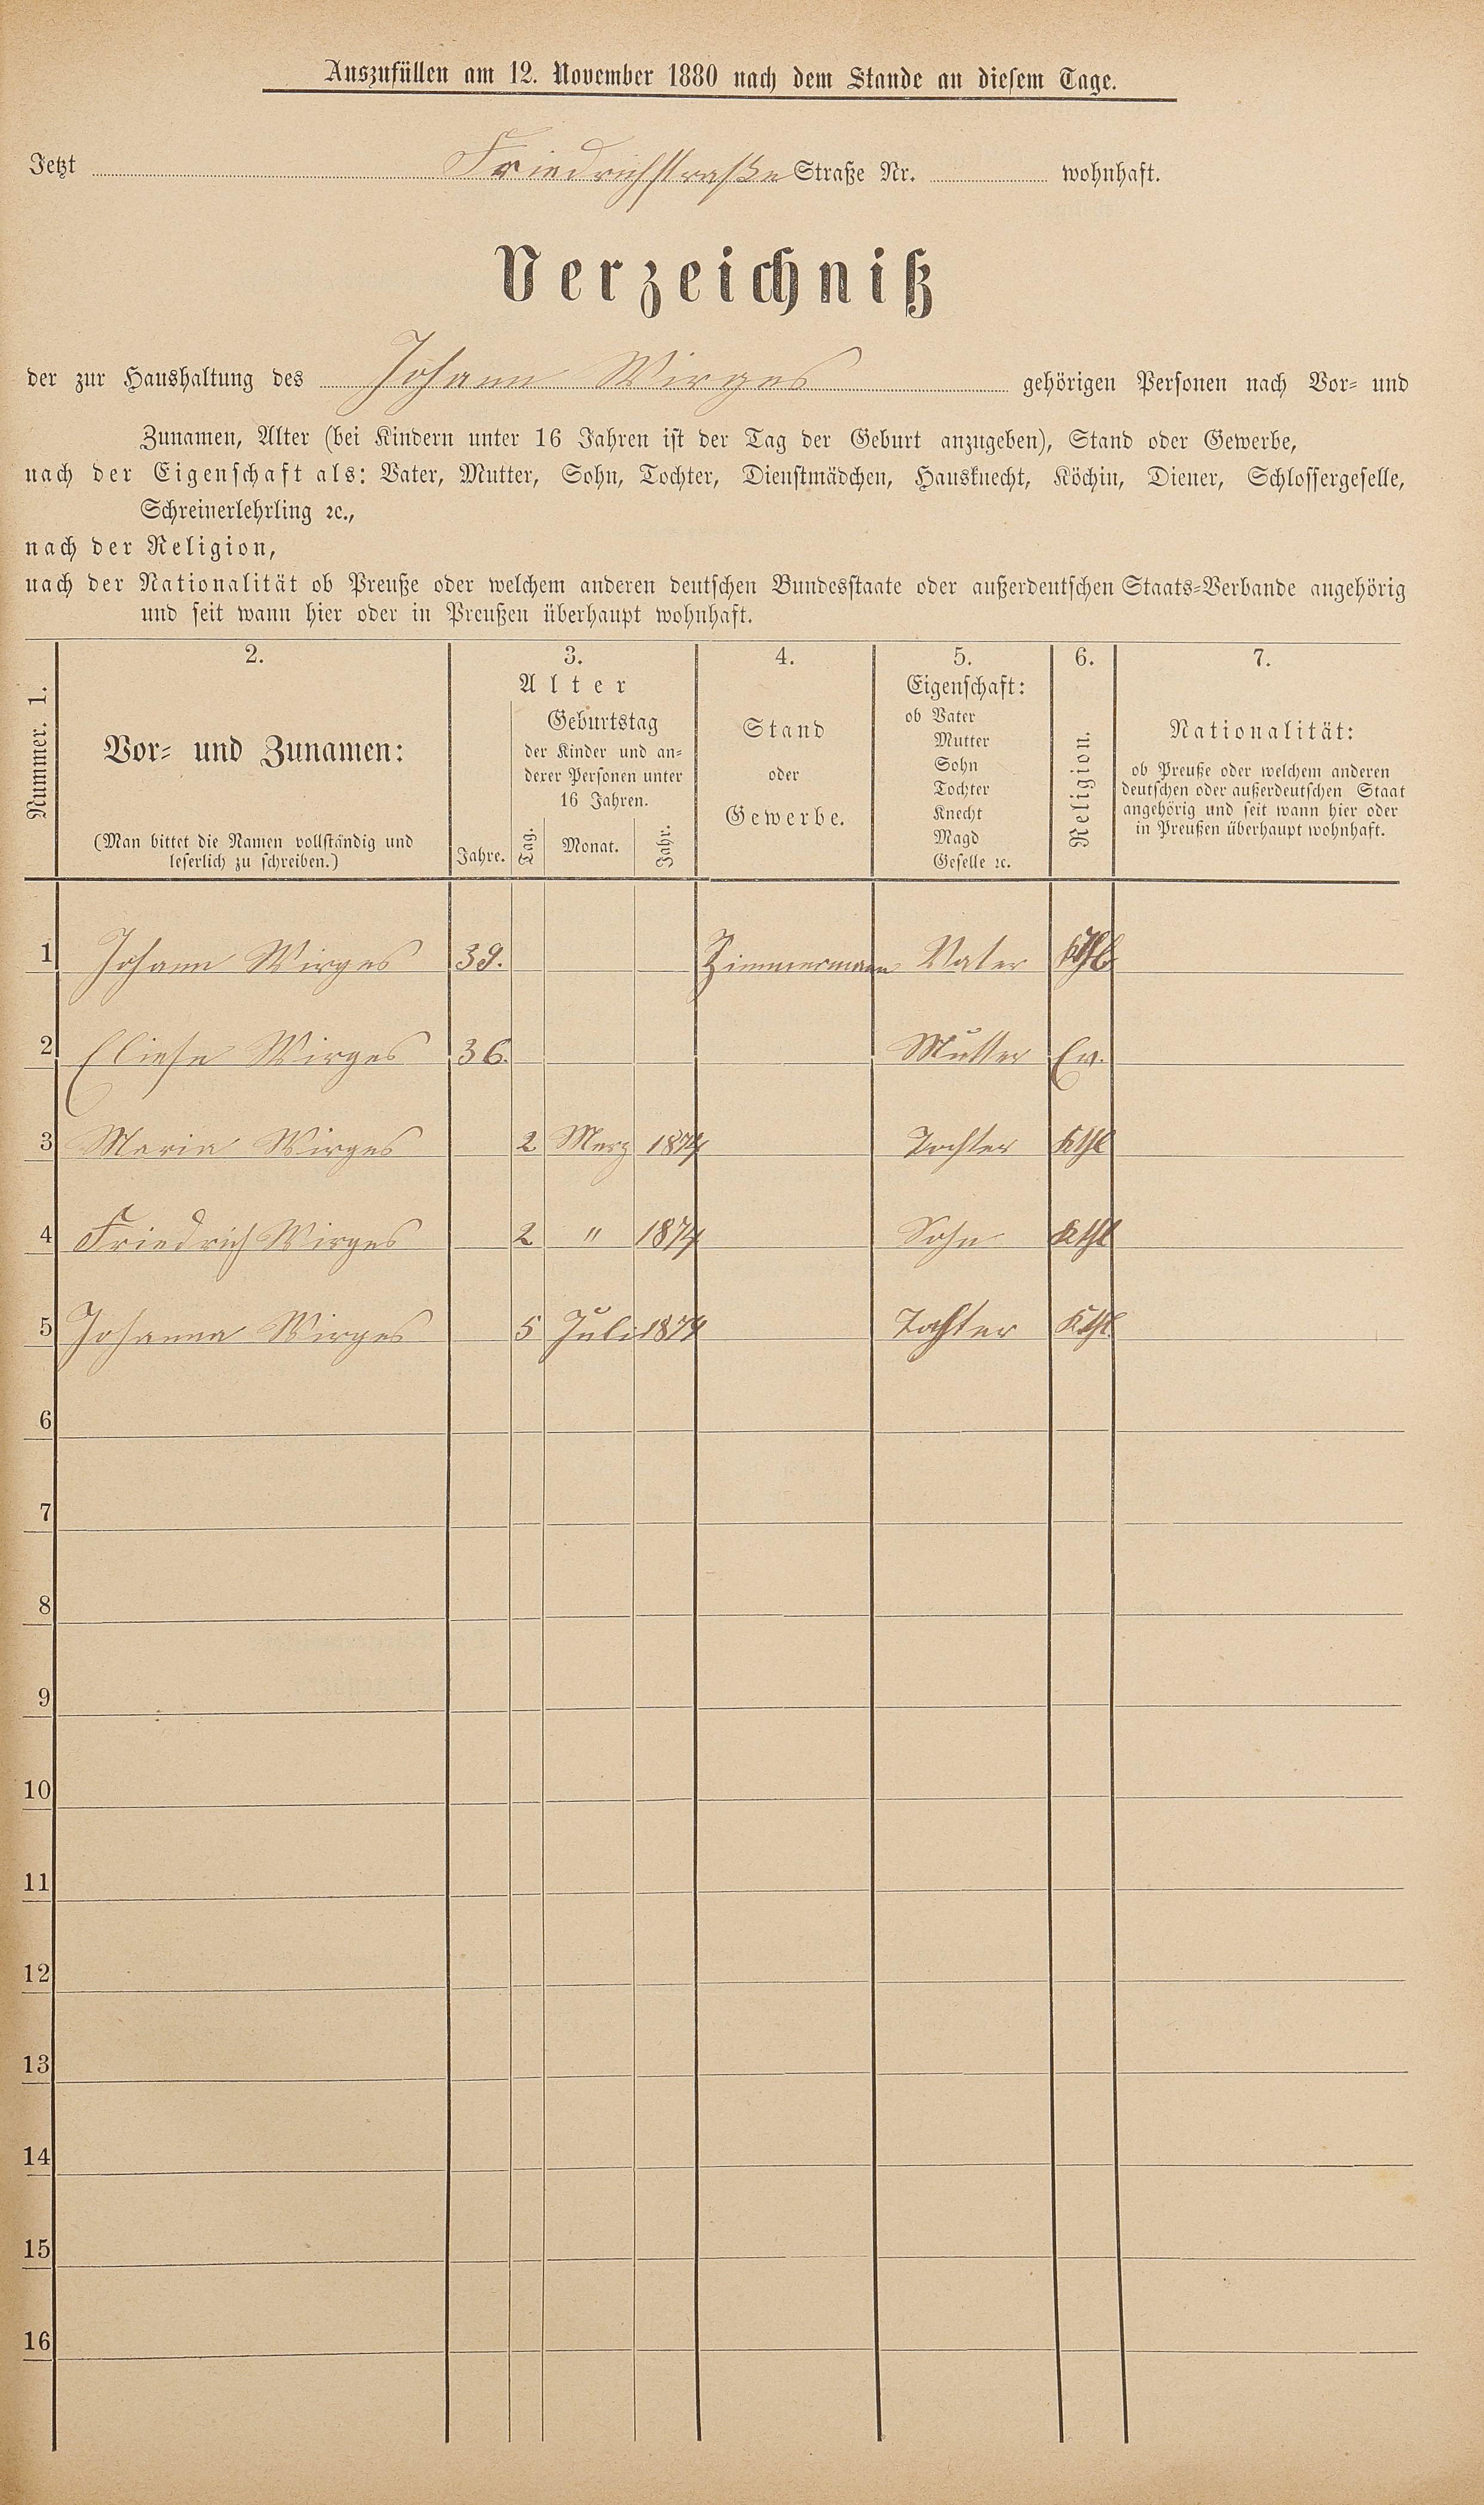 Auszufüllen am 12. November 1880 nach dem Stande an diesem Tage.
Jetzt Friedrichstraße Straße Nr. wohnhaft.
Verzeichniß
der zur Haushaltung des Johann Wirges gehörigen Personen nach Vor- und
Zunamen, Alter (bei Kindern unter 16 Jahren ist der Tag der Geburt anzugeben), Stand oder Gewerbe,
nach der Eigenschaft als: Vater, Mutter, Sohn, Tochter, Dienstmädchen, Hausknecht, Köchin, Diener, Schlossergeselle,
Schreinerlehrling ꝛc.,
nach der Religion,
nach der Nationalität ob Preuße oder welchem anderen deutschen Bundesstaate oder außerdeutschen Staats-Verbande angehörig
und seit wann hier oder in Preußen überhaupt wohnhaft.
Nummer. 1.
2.
Vor- und Zunamen:
(Man bittet die Namen vollständig und
leserlich zu schreiben.)
3.
Alter
Jahre.
Geburtstag
der Kinder und an-
derer Personen unter
16 Jahren.
Tag. Monat. Jahr.
4.
Stand
oder
Gewerbe.
5.
Eigenschaft:
ob Vater
Mutter
Sohn
Tochter
Knecht
Magd
Geselle ꝛc.
6.
Religion.
7.
Nationalität:
ob Preuße oder welchem anderen
deutschen oder außerdeutschen Staat
angehörig und seit wann hier oder
in Preußen überhaupt wohnhaft.
1 Johann Wirges 39. Zimmermann Vater Kthl
2 Eliese Wirges 36. Mutter Ev.
3 Maria Wirges 2 Merz Tochter Kthl
4 Friedrich Wirges 2 " 1874 Sohn Kthl
5 Johanna Wirges 5 Juli 1879 Tochter Kthl
6
7
8
9
10
11
12
13
14
15
16